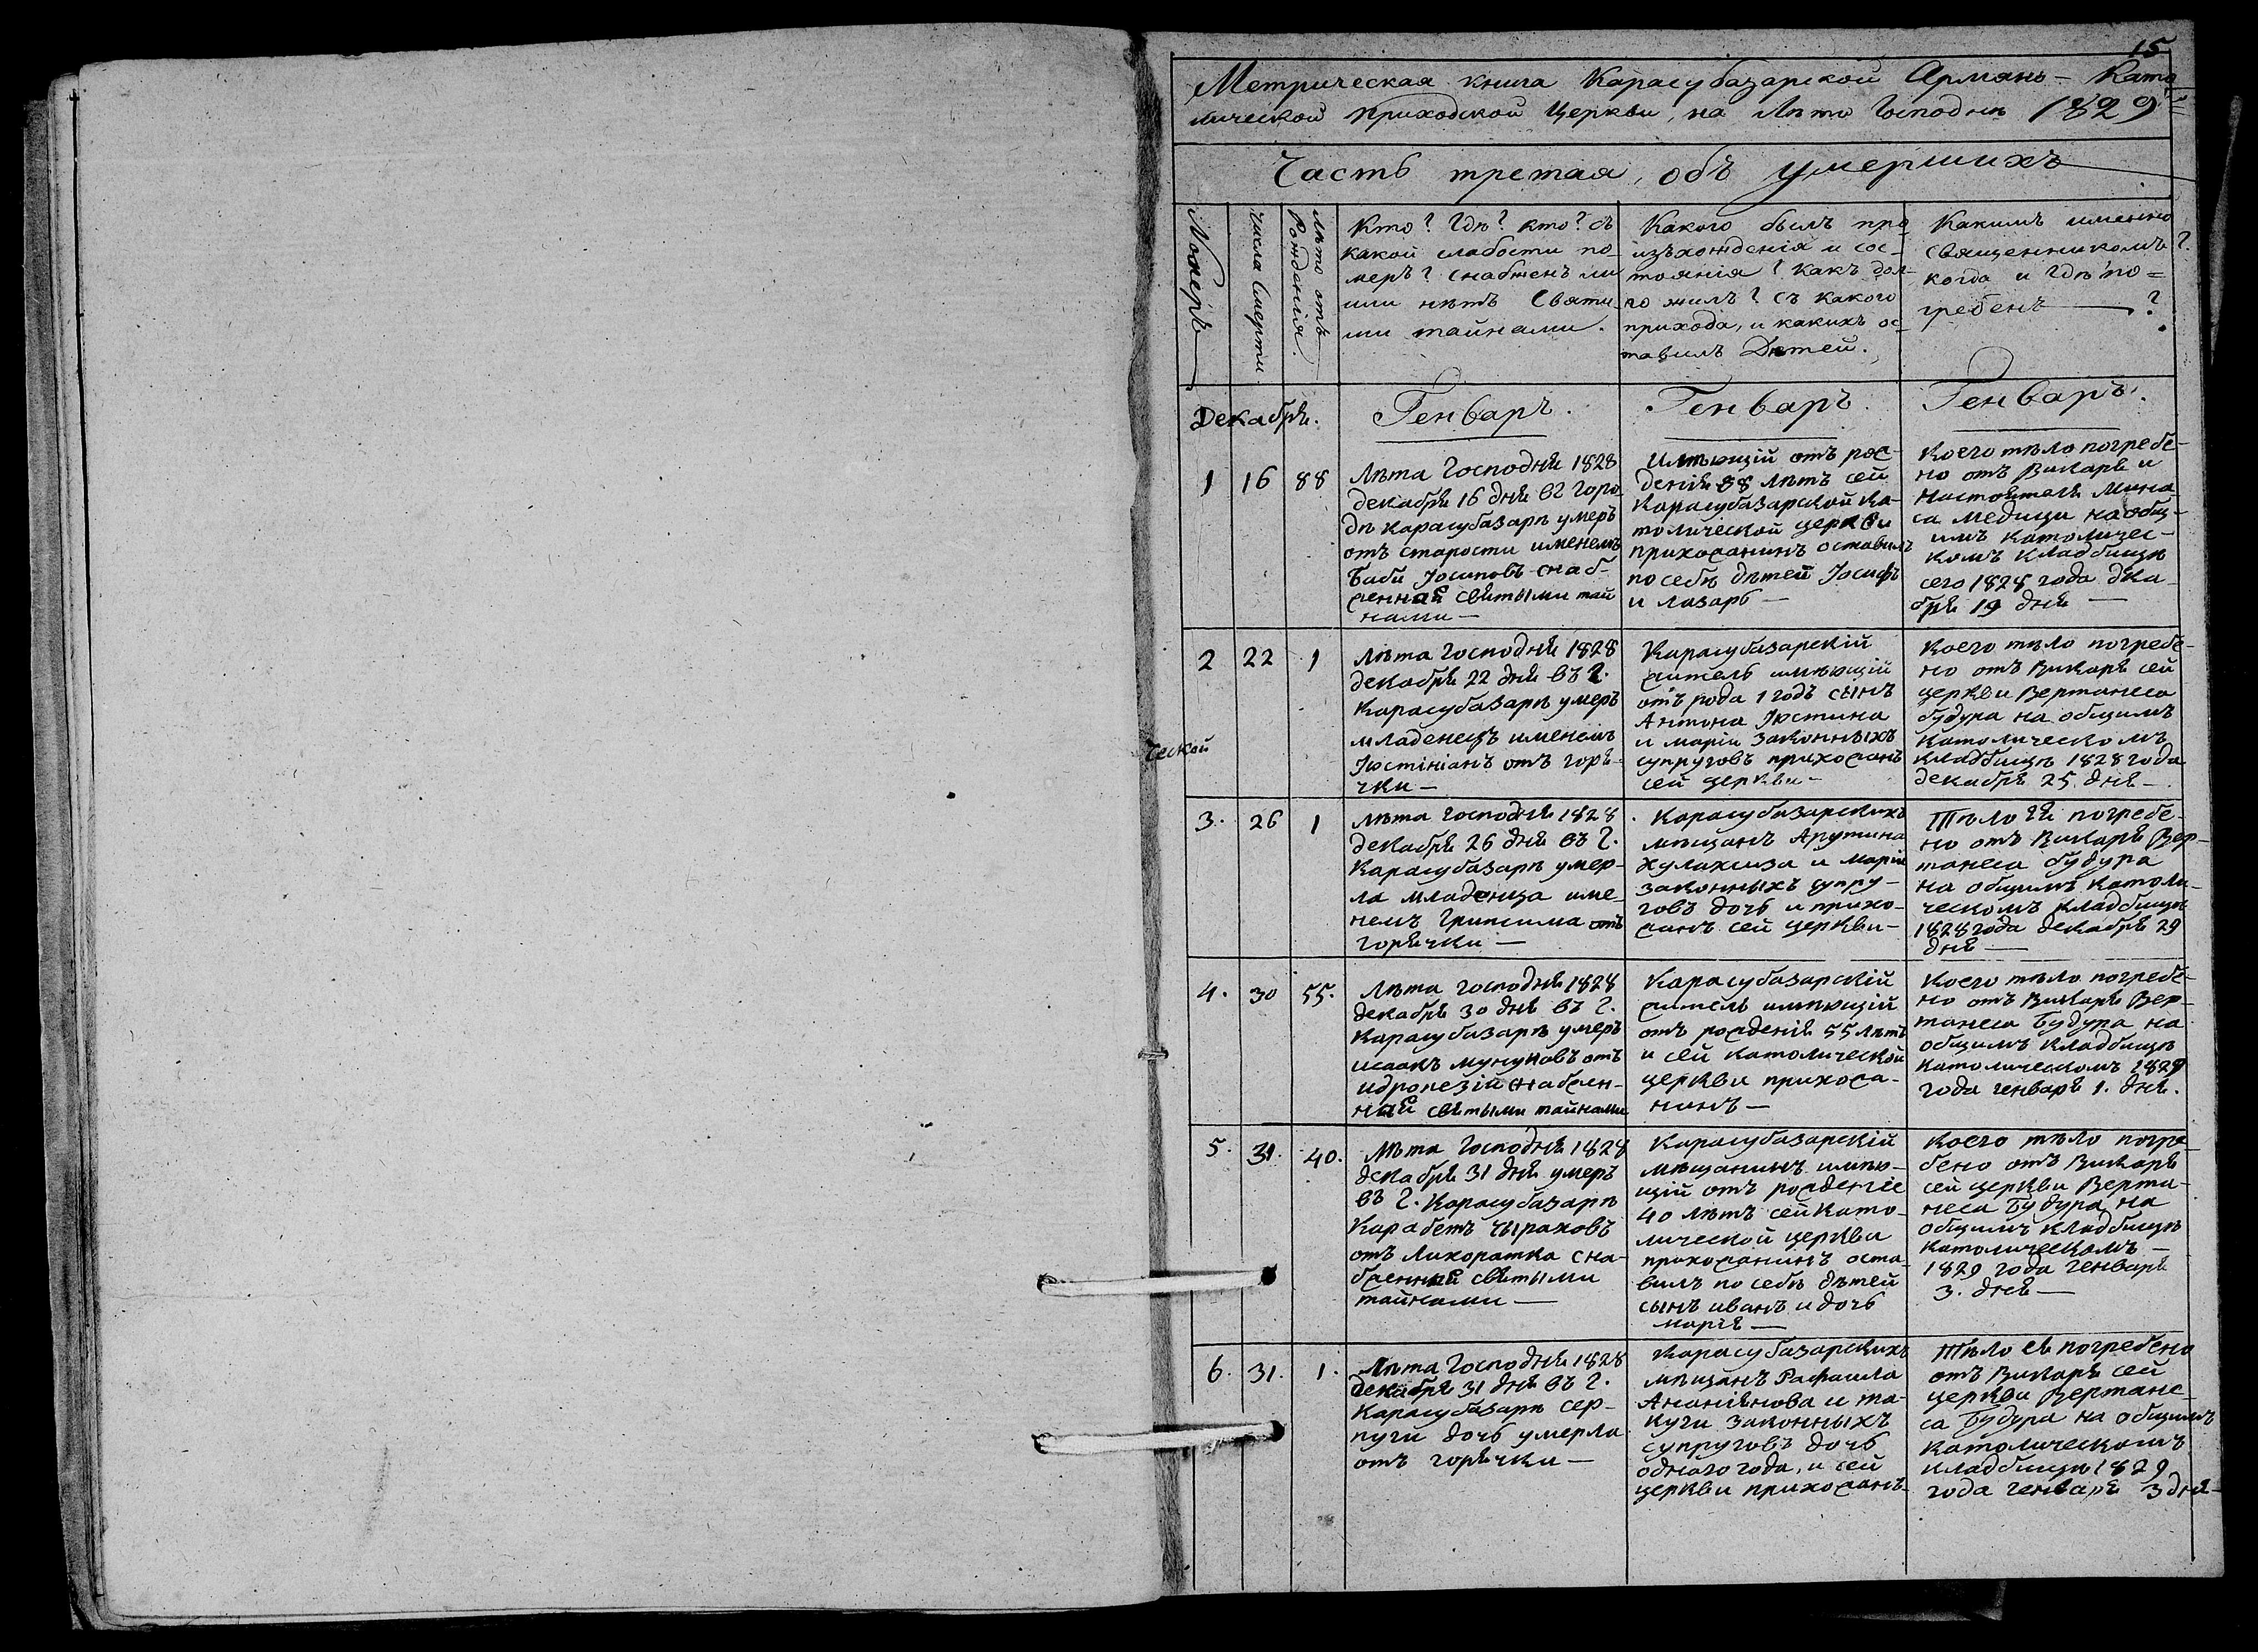 15
Метрическая книга Карасубазарской Армяно-Като
лической приходской Церкви, на Лѣто Господнѣ 1829
Часть третая, объ умершихъ
Номеръ
числа Смерти
Лѣто отъ
Рожденія.
Кто? Гдѣ? кто? съ
какой слабости по-
меръ? снабженъ ли
или нѣтъ Святи-
ми тайнами.
Какого былъ про
изъхожденія и сос-
тоянія? Какъ дол-
го жилъ? съ какого
прихода, и какихъ ос-
тавилъ Дѣтей.
Какимъ именно
священникомъ?
когда и гдѣ по=
гребенъ — ?
Декабря.
Генваръ.
Генваръ.
Генваръ.
1 16 88
Лѣта Господня 1828
декабря 16 дня въ горо
дѣ Карасубазарѣ умеръ
отъ старости именемъ
Баби Іосиповъ снаб-
женнай святыми тай
нами —
Имѣющій отъ рож-
денія 88 лѣтъ сей
Карасубазарской Ка-
толической церкви
прихожанинъ оставилъ
по себѣ дѣтей Іосифъ
и Лазарь —
Коего тѣло погребе-
но отъ Викаря и
Настоятеля Мина-
са Медици на общ-
имъ католичес-
комъ кладбищѣ
сего 1828 года дека-
бря 19 дня —
2 22 1
Лѣта Господня 1828
декабря 22 дня въ г.
Карасубазарѣ умеръ
младенецъ именемъ
Іюстініанъ отъ горя-
чки —
Карасубазарскій
житель имѣющій
отъ рода 1 годъ сынъ
Антона Іюстина
и Маріи законныхъ
супруговъ прихожанъ
сей церкви —
Коего тѣло погребе-
но отъ Викаря сей
церкви Вертанеса
Будура на общимъ
католическомъ
кладбищѣ 1828 года
декабря 25 дня —
ческой
3. 26 1
Лѣта Господня 1828
декабря 26 дня въ г.
Карасубазарѣ умер-
ла младенца име-
немъ Грипсима отъ
горячки —
Карасубазарскихъ
мѣщанъ Арутина
и Маріи
законныхъ супру-
говъ дочь и прихо-
жанъ сей церкви —
Тѣло ея погребе-
но отъ Викаря Вер-
танеса Будура
на общимъ католи-
ческомъ кладбищѣ
1828 года декабря 29
дня —
4. 30 55.
Лѣта Господня 1828
декабря 30 дня въ г.
Карасубазарѣ умеръ
Исаакъ Мунуковъ отъ
идропезій снабжен-
най святыми тайнами
Карасубазарскій
житель имѣющій
отъ рожденія 55 лѣтъ
и сей католической
церкви прихожа-
нинъ —
Коего тѣло погребе-
но отъ Викаря Вер-
танеса Будура на
общимъ кладбищѣ
католическомъ 1829
года генваря 1. дня.
5. 31. 40.
Лѣта Господня 1828
декабря 31 дня умеръ
въ г. Карасубазарѣ
Карабетъ Чыраховъ
отъ лихоратка сна-
бженнай святыми
тайнами —
Карасубазарскій
мѣщанинъ имѣю-
щій отъ рожденіе
40 лѣтъ сей като-
лической церкви
прихожанинъ оста-
вилъ по себѣ дѣтей
сынъ Иванъ и дочь
Марія —
Коего тѣло погре-
бено отъ Викаря
сей церкви Верта-
неса Будура на
общимъ кладбищѣ
католическомъ —
1829 года генваря
3. дня —
6. 31. 1.
Лѣта Господня 1828
декабря 31 дня въ г.
Карасубазарѣ Сер-
пуги дочь умерла
отъ горячки —
Карасубазарскихъ
мѣщанъ Рафаила
Ананіянова и Та-
куги законныхъ
супруговъ дочь
одного года, и сей
церкви прихожанъ —
Тѣло ея погребено
отъ Викаря сей
церкви Вертане-
са Будура на общимъ
католическомъ
кладбищѣ 1829
года генваря 3 дня —